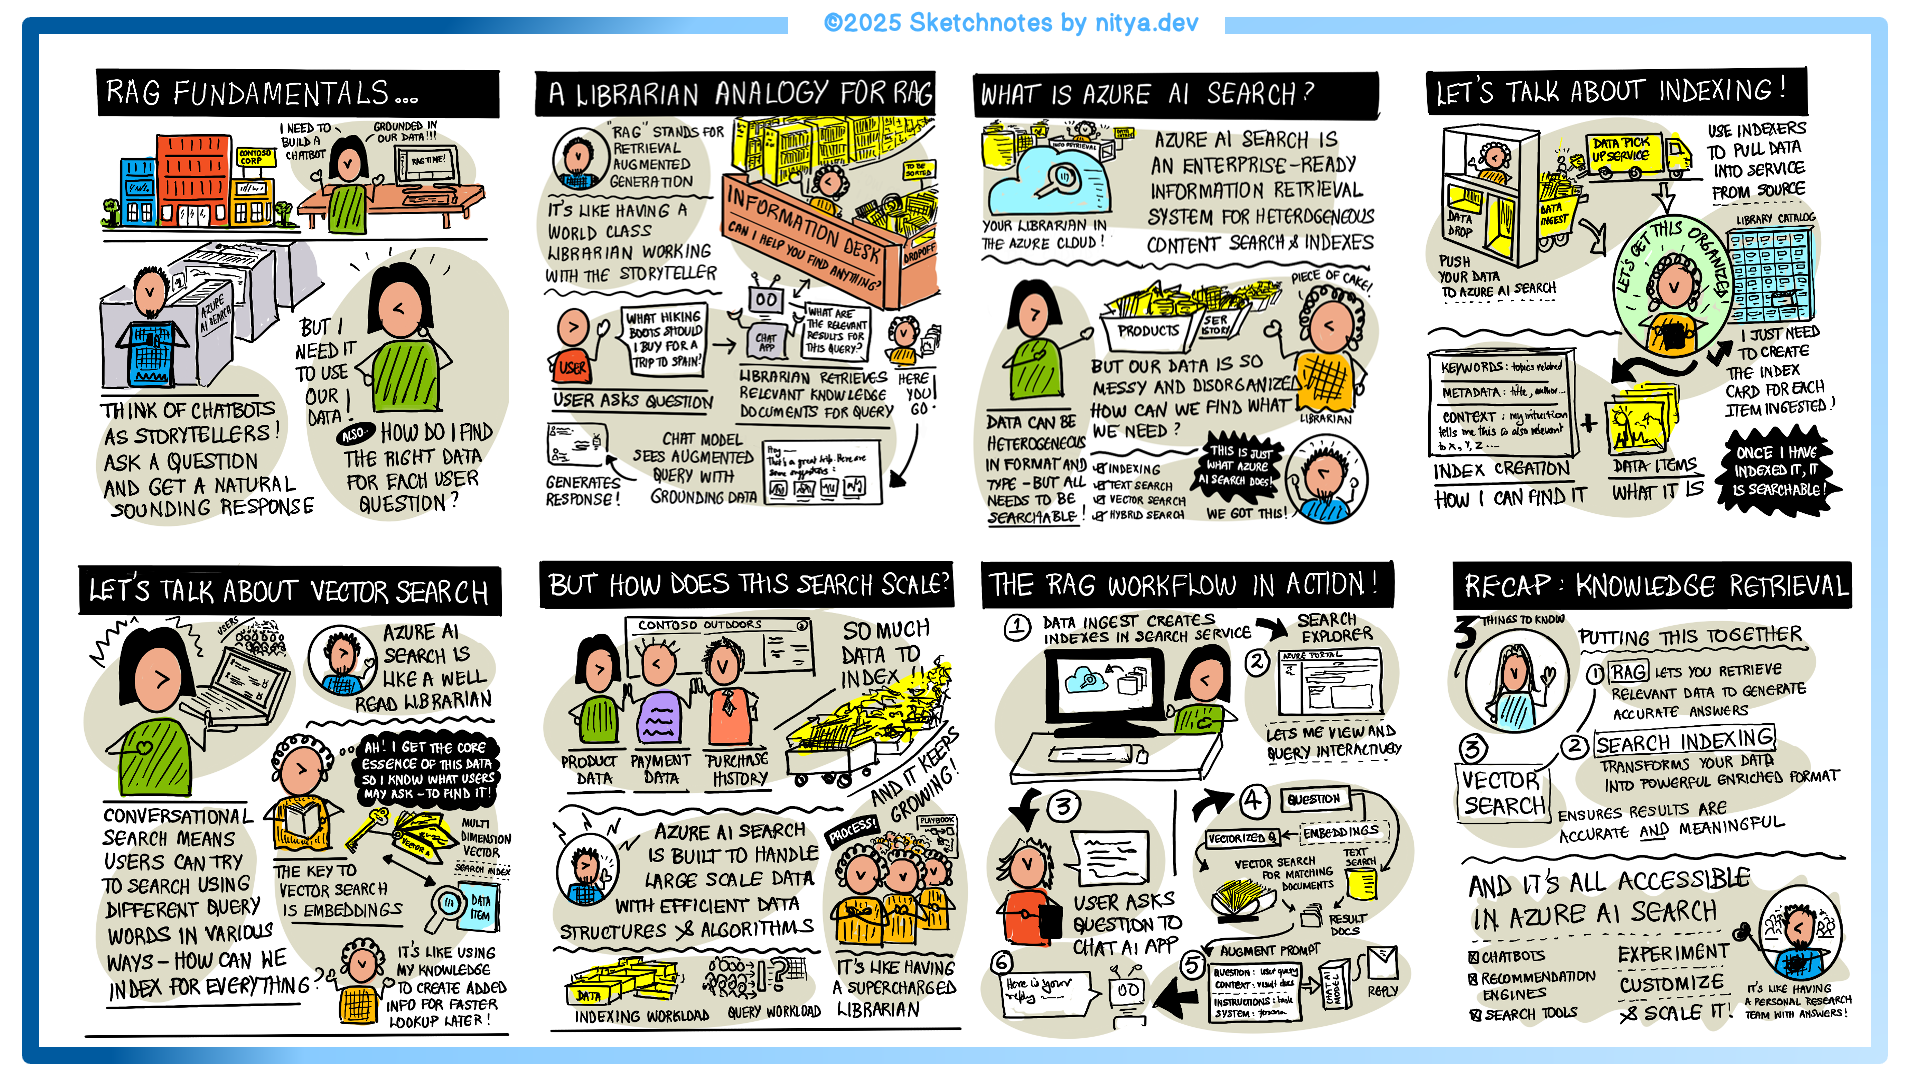 ©2025 Sketchnotes by nitya.dev
RAG FUNDAMENTALS...
I NEED TO
BUILD A
CHATBOT
GROUNDED IN
OUR DATA!!!
CONTOSO
CORP
RAG TIME!
AZURE
AI SEARCH
BUT I
NEED IT
TO USE
OUR
DATA!
THINK OF CHATBOTS
AS STORYTELLERS!
ASK A QUESTION
AND GET A NATURAL
SOUNDING RESPONSE
ALSO..
HOW DO I FIND
THE RIGHT DATA
FOR EACH USER
QUESTION?
A LIBRARIAN ANALOGY FOR RAG
"RAG" STANDS FOR
RETRIEVAL
AUGMENTED
GENERATION
IT'S LIKE HAVING A
WORLD CLASS
LIBRARIAN WORKING
WITH THE STORYTELLER
TO BE
SORTED
INFORMATION DESK
CAN I HELP YOU FIND ANYTHING?
DROPOFF
USER
WHAT HIKING
BOOTS SHOULD
I BUY FOR A
TRIP TO SPAIN?
CHAT
APP
WHAT ARE
THE RELEVANT
RESULTS FOR
THIS QUERY?
USER ASKS QUESTION
LIBRARIAN RETRIEVES
RELEVANT KNOWLEDGE
DOCUMENTS FOR QUERY
HERE
YOU
GO!
GENERATES
RESPONSE!
CHAT MODEL
SEES AUGMENTED
QUERY WITH
GROUNDING DATA
WHAT IS AZURE AI SEARCH?
INFO RETRIEVAL
YOUR LIBRARIAN IN
THE AZURE CLOUD!
AZURE AI SEARCH IS
AN ENTERPRISE-READY
INFORMATION RETRIEVAL
SYSTEM FOR HETEROGENEOUS
CONTENT SEARCH & INDEXES
PRODUCTS
PIECE OF CAKE!
BUT OUR DATA IS SO
MESSY AND DISORGANIZED
HOW CAN WE FIND WHAT
WE NEED?
LIBRARIAN
DATA CAN BE
HETEROGENEOUS
IN FORMAT AND
TYPE - BUT ALL
NEEDS TO BE
SEARCHABLE!
INDEXING
TEXT SEARCH
VECTOR SEARCH
HYBRID SEARCH
THIS IS JUST
WHAT AZURE
AI SEARCH DOES!
WE GOT THIS!
LET'S TALK ABOUT INDEXING!
DATA
DROP
DATA PICK
UP SERVICE
DATA
INGEST
USE INDEXERS
TO PULL DATA
INTO SERVICE
FROM SOURCE
PUSH
YOUR DATA
TO AZURE AI SEARCH
LET'S GET THIS ORGANIZED!
LIBRARY CATALOG
I JUST NEED
TO CREATE
THE INDEX
CARD FOR EACH
ITEM INGESTED!
KEYWORDS: topics related
METADATA: title, author...
CONTEXT: my intuition
tells me this is also relevant
to X, Y, Z...
+
INDEX CREATION
HOW I CAN FIND IT
DATA ITEMS
WHAT IT IS
ONCE I HAVE
INDEXED IT, IT
IS SEARCHABLE!
LET'S TALK ABOUT VECTOR SEARCH
USERS
AZURE AI
SEARCH IS
LIKE A WELL
READ LIBRARIAN
CONVERSATIONAL
SEARCH MEANS
USERS CAN TRY
TO SEARCH USING
DIFFERENT QUERY
WORDS IN VARIOUS
WAYS - HOW CAN WE
INDEX FOR EVERYTHING?
AH! I GET THE CORE
ESSENCE OF THIS DATA
SO I KNOW WHAT USERS
MAY ASK - TO FIND IT!
MULTI
DIMENSION
VECTOR
THE KEY TO
VECTOR SEARCH
IS EMBEDDINGS
SEARCH INDEX
DATA
ITEM
IT'S LIKE USING
MY KNOWLEDGE
TO CREATE ADDED
INFO FOR FASTER
LOOKUP LATER!
BUT HOW DOES THIS SEARCH SCALE?
CONTOSO OUTDOORS
SO MUCH
DATA TO
INDEX!!
PRODUCT
DATA
PAYMENT
DATA
PURCHASE
HISTORY
AND IT KEEPS
GROWING!
AZURE AI SEARCH
IS BUILT TO HANDLE
LARGE SCALE DATA
WITH EFFICIENT DATA
STRUCTURES & ALGORITHMS
PROCESS!
PLAYBOOK
DATA
INDEXING WORKLOAD
QUERY WORKLOAD
IT'S LIKE HAVING
A SUPERCHARGED
LIBRARIAN
THE RAG WORKFLOW IN ACTION!
1
DATA INGEST CREATES
INDEXES IN SEARCH SERVICE
SEARCH
EXPLORER
2
AZURE PORTAL
LETS ME VIEW AND
QUERY INTERACTIVELY
3
USER ASKS
QUESTION TO
CHAT AI APP
4
QUESTION
VECTORIZED Q
EMBEDDINGS
VECTOR SEARCH
FOR MATCHING
DOCUMENTS
TEXT
SEARCH
RESULT
DOCS
5
AUGMENT PROMPT
QUESTION: user query
CONTEXT: result docs
INSTRUCTIONS: task
SYSTEM: persona
CHAT AI
MODEL
REPLY
6
Here is your
reply
RECAP: KNOWLEDGE RETRIEVAL
3 THINGS TO KNOW
PUTTING THIS TOGETHER
1 RAG LETS YOU RETRIEVE
RELEVANT DATA TO GENERATE
ACCURATE ANSWERS
2 SEARCH INDEXING
TRANSFORMS YOUR DATA
INTO POWERFUL ENRICHED FORMAT
3
VECTOR
SEARCH
ENSURES RESULTS ARE
ACCURATE AND MEANINGFUL
AND IT'S ALL ACCESSIBLE
IN AZURE AI SEARCH
CHATBOTS
RECOMMENDATION
ENGINES
SEARCH TOOLS
EXPERIMENT
CUSTOMIZE
& SCALE IT!
IT'S LIKE HAVING
A PERSONAL RESEARCH
TEAM WITH ANSWERS!